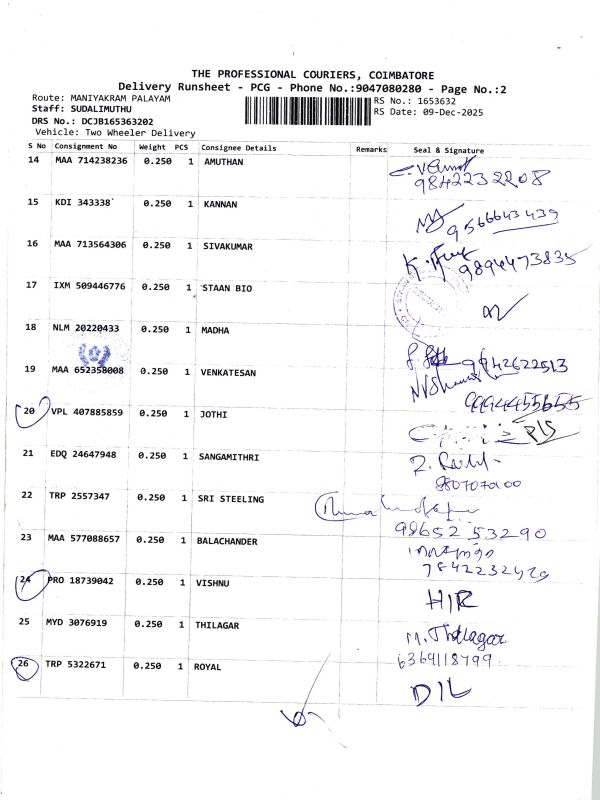 THE PROFESSIONAL COURIERS, COIMBATORE
Delivery Runsheet - PCG - Phone No.:9047080280 - Page No.:2
Route: MANIYAKRAM PALAYAM
RS No.: 1653632
Staff: SUDALIMUTHU
RS Date: 09-Dec-2025
DRS No.: DCJB165363202
Vehicle: Two Wheeler Delivery
S No Consignment No Weight PCS Consignee Details Remarks Seal & Signature
14 MAA 714238236 0.250 1 AMUTHAN
9842232208
15 KDI 343338 0.250 1 KANNAN
9566643439
16 MAA 713564306 0.250 1 SIVAKUMAR
9894473835
17 IXM 509446776 0.250 1 STAAN BIO
18 NLM 20220433 0.250 1 MADHA
9942622513
19 MAA 652358008 0.250 1 VENKATESAN
9994455655
20 VPL 407885859 0.250 1 JOTHI
21 EDQ 24647948 0.250 1 SANGAMITHRI
22 TRP 2557347 0.250 1 SRI STEELING
98652 53290
23 MAA 577088657 0.250 1 BALACHANDER
24 PRO 18739042 0.250 1 VISHNU
HIR
25 MYD 3076919 0.250 1 THILAGAR
M. Thilagar
6369118799
26 TRP 5322671 0.250 1 ROYAL
DIL